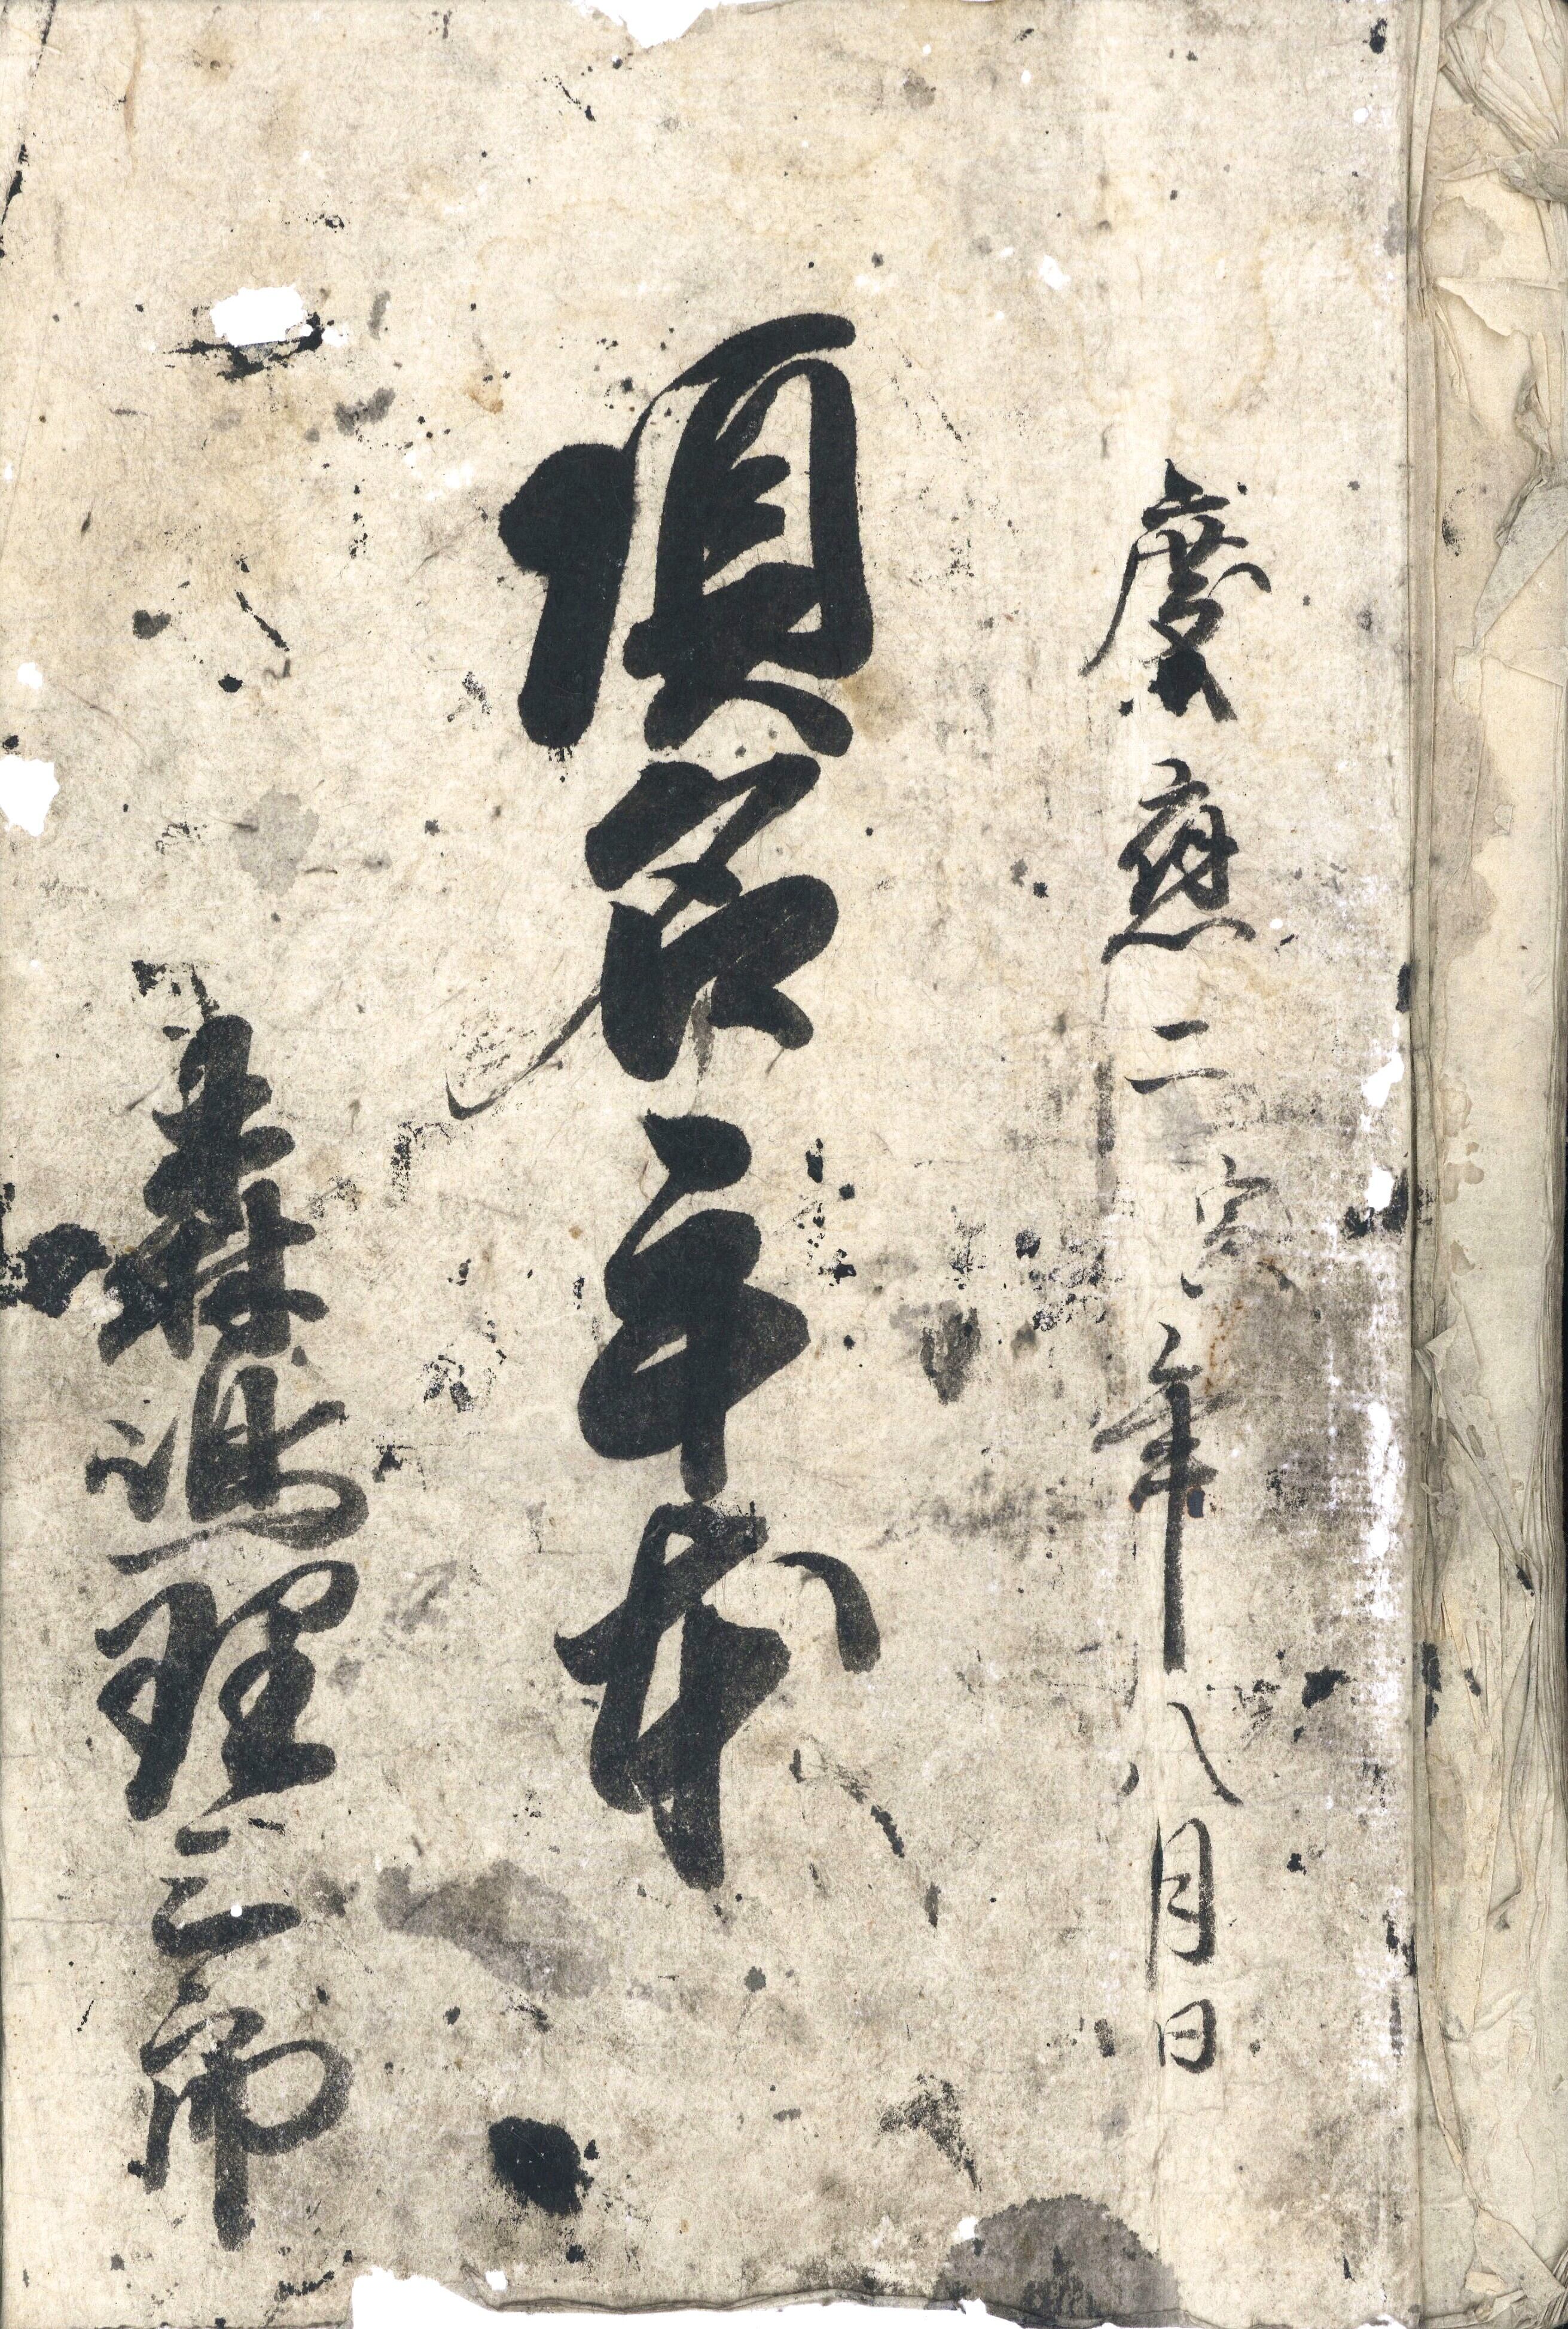 慶應二寅年八月日
頭名手本
森嶋理三郎